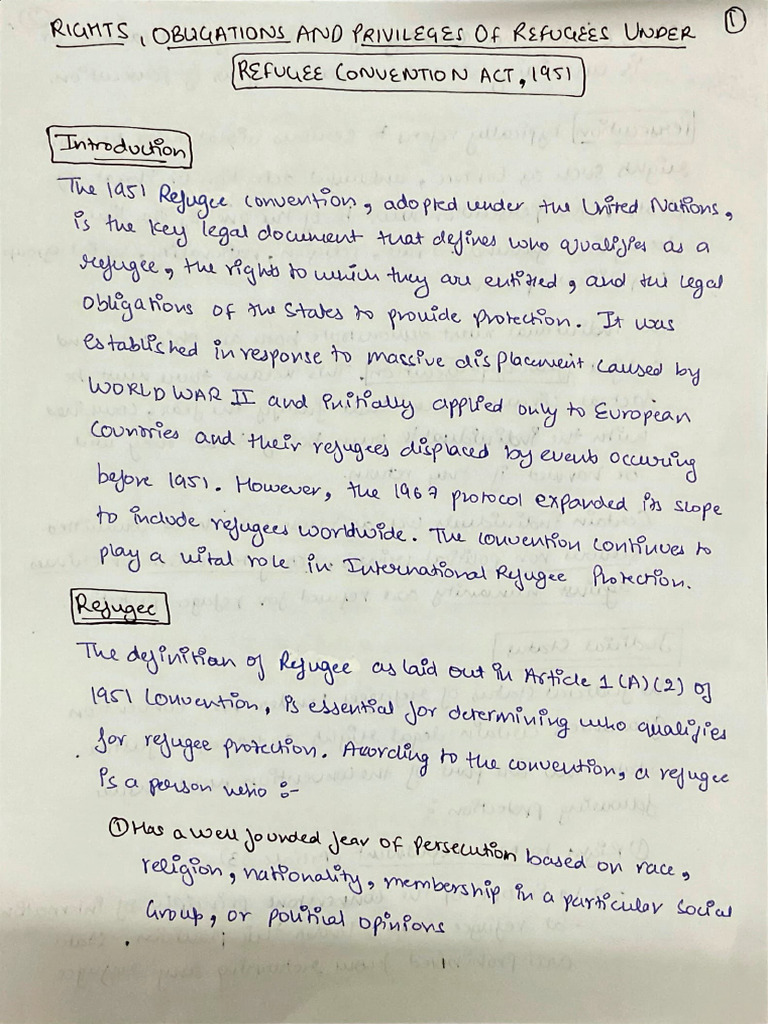 ①
RIGHTS, OBLIGATIONS AND PRIVILEGES OF REFUGEES UNDER
REFUGEE CONVENTION ACT, 1951
Introduction
The 1951 Refugee convention, adopted under the United Nations,
is the key legal document that defines who qualifies as a
refugee, the rights to which they are entitled, and the legal
obligations of the States to provide protection. It was
established in response to massive displacement caused by
WORLD WAR II and initially applied only to European
Countries and their refugees displaced by events occuring
before 1951. However, the 1967 protocol expanded its scope
to include refugees worldwide. The convention continues to
play a vital role in International Refugee Protection.
Refugee
The definition of Refugee as laid out in Article 1(A)(2) of
1951 Convention, is essential for determining who qualifies
for refugee protection. According to the convention, a refugee
is a person who :-
① Has a well founded fear of persecution based on race,
religion, nationality, membership in a particular social
Group, or political opinions